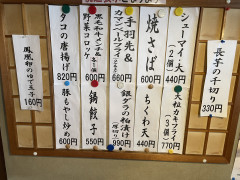 長芋の千切り
330円
シューマイ大
(2個)
440円
大粒カキフライ
(3個)
770円
焼さば
660円
ちくわ天
440円
手羽先&
カマンベールフライ
660円
銀ダラの粕漬け
550円
野菜コロッケ
600円
鍋餃子
550円
タコの唐揚げ
820円
豚もやし炒め
600円
鳳凰卵のゆで玉子
160円